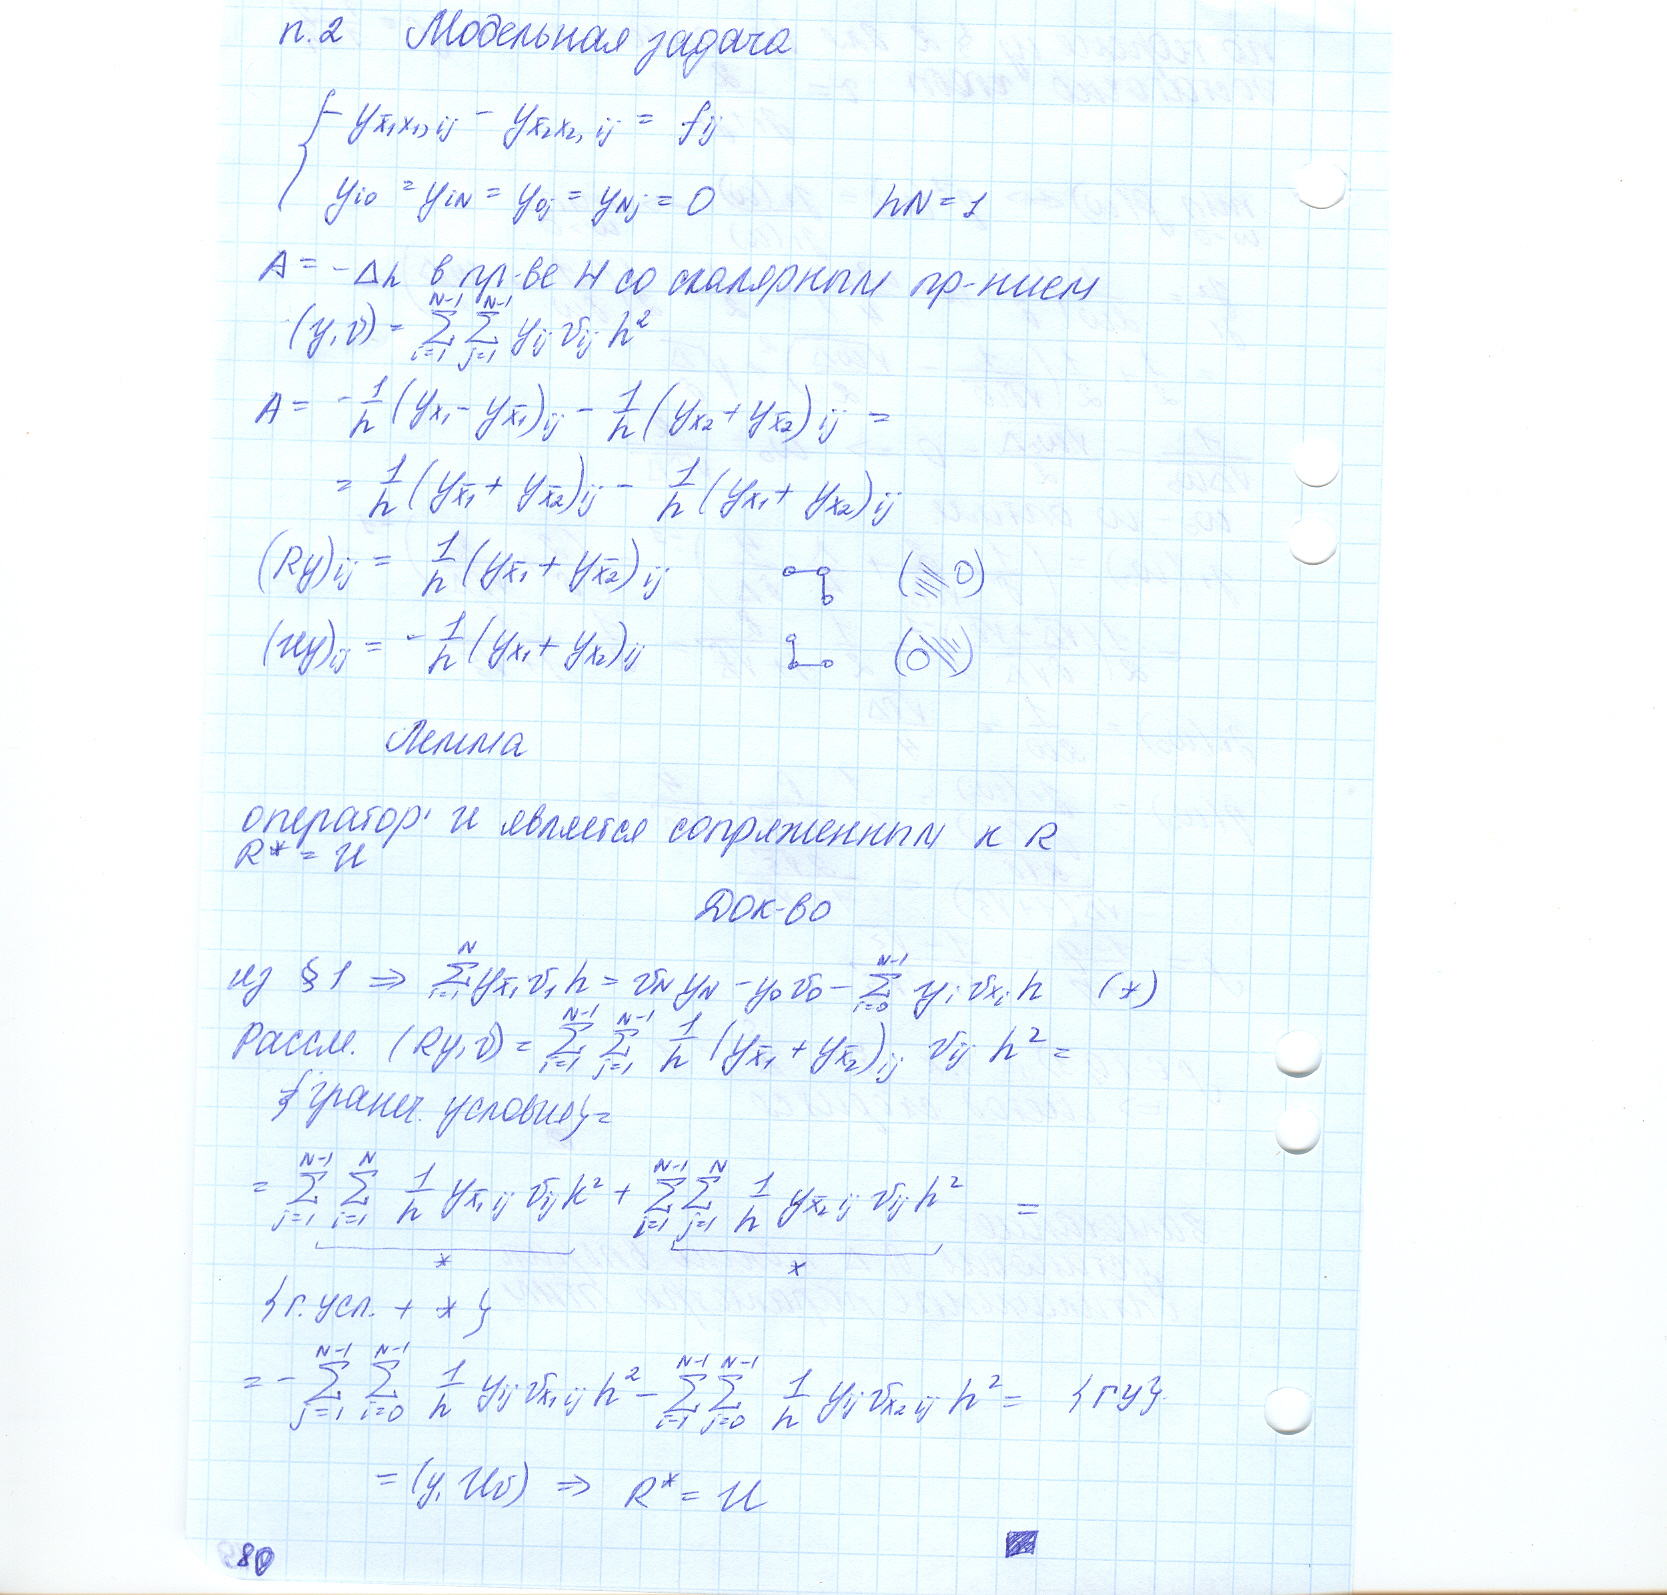 п.2 Модельная задача
{ - y_{x̄₁x₁,ij} - y_{x̄₂x₂,ij} = f_{ij}
y_{i0} = y_{iN} = y_{0j} = y_{Nj} = 0 hN = 1
A = -Δh в пр-ве H со скалярным пр-нием
(y,v) = Σ_{i=1}^{N-1} Σ_{j=1}^{N-1} y_{ij} v_{ij} h²
A = - 1/h (y_{x₁} - y_{x̄₁})_{ij} - 1/h (y_{x₂} + y_{x̄₂})_{ij} =
= 1/h (y_{x̄₁} + y_{x̄₂})_{ij} - 1/h (y_{x₁} + y_{x₂})_{ij}
(Ry)_{ij} = 1/h (y_{x̄₁} + y_{x̄₂})_{ij} ( 0)
(Uy)_{ij} = - 1/h (y_{x₁} + y_{x₂})_{ij} (0 )
Лемма
оператор U является сопряженным к R
R* = U
Док-во
из §1 ⇒ Σ_{i=1}^{N} y_{x̄₁} v₁ h = v_N y_N - y₀ v₀ - Σ_{i=0}^{N-1} y_i v_{x_i} h (*)
Рассм. (Ry,v) = Σ_{i=1}^{N-1} Σ_{j=1}^{N-1} 1/h (y_{x̄₁} + y_{x̄₂})_{ij} v_{ij} h² =
{гранич. условия} =
= Σ_{j=1}^{N-1} Σ_{i=1}^{N} 1/h y_{x̄₁ ij} v_{ij} h² + Σ_{i=1}^{N-1} Σ_{j=1}^{N} 1/h y_{x̄₂ ij} v_{ij} h² =
* *
{г. усл. + *}
= - Σ_{j=1}^{N-1} Σ_{i=0}^{N-1} 1/h y_{ij} v_{x₁ ij} h² - Σ_{i=1}^{N-1} Σ_{j=0}^{N-1} 1/h y_{ij} v_{x₂ ij} h² = {гу}
= (y, Uv) ⇒ R* = U
80